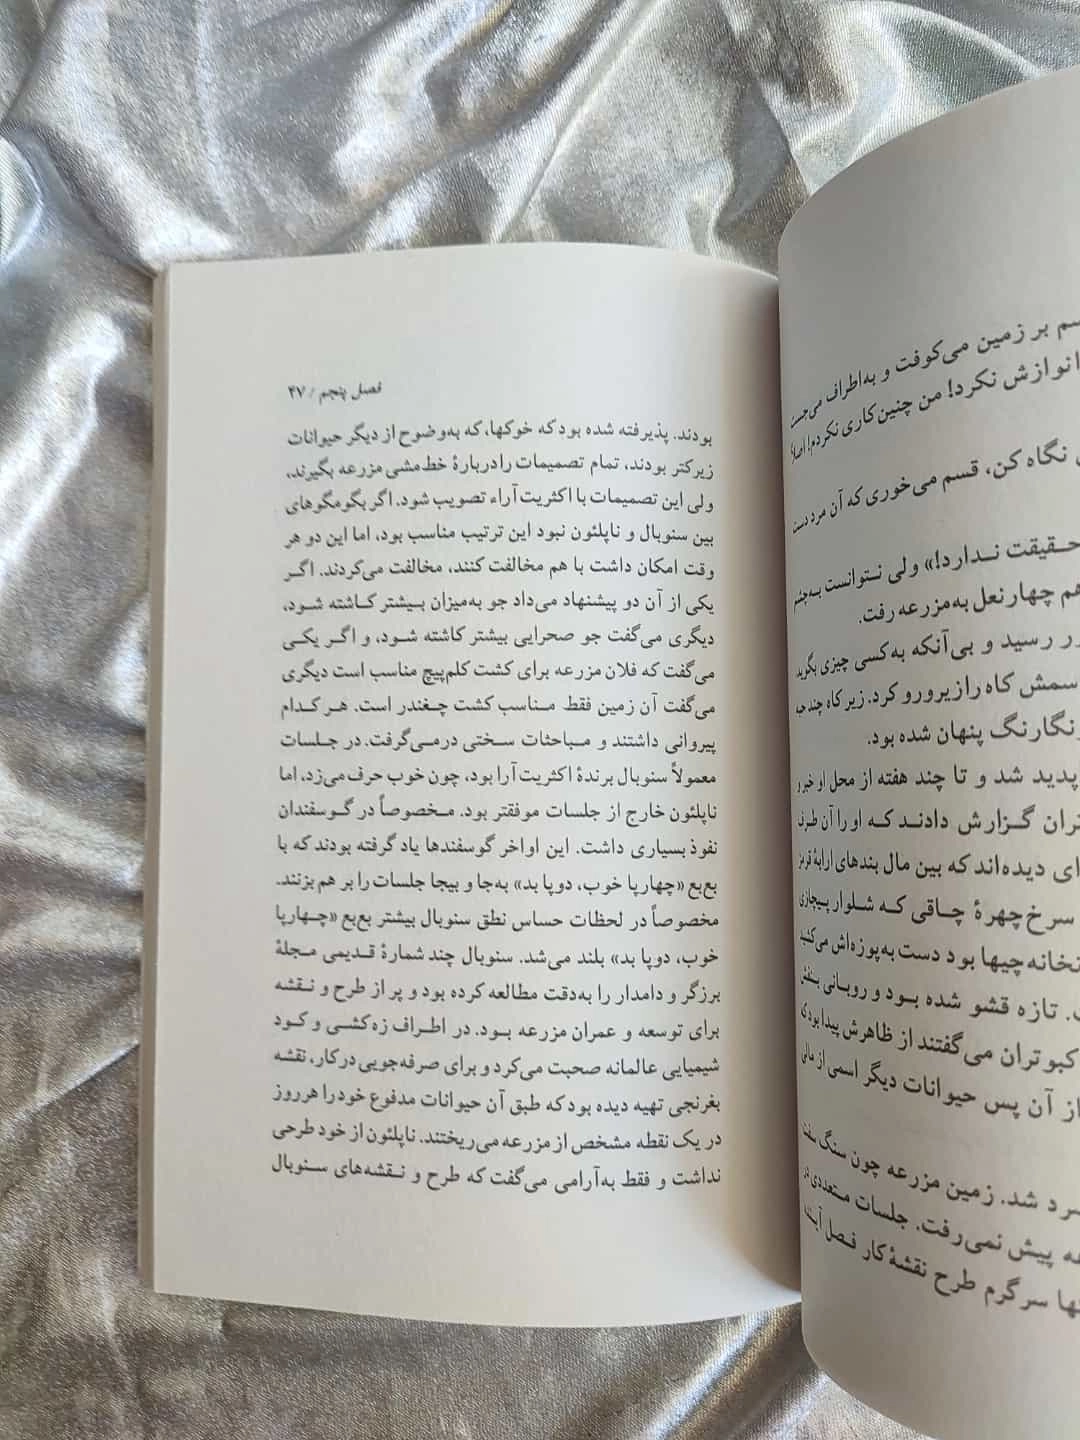 سم بر زمین می‌کوفت و به‌اطراف می‌جست
نوازش نکرد! من چنین‌کاری نکردم! اصلاً
نگاه کن، قسم می‌خوری که آن مرد دست
حقیقت ندارد!» ولی نتوانست به‌چشم
هم چهارنعل به‌مزرعه رفت.
رسید و بی‌آنکه به‌کسی چیزی بگوید
سمش کاه را زیرورو کرد. زیر کاه چند حبه
رنگارنگ پنهان شده بود.
پدید شد و تا چند هفته از محل او خبر و
گزارش دادند که او را آن طرف
دیده‌اند که بین مال بندهای ارابهٔ قرمز
سرخ‌چهرهٔ چاقی که شلوار پیچازی
بود دست به‌پوزه‌اش می‌کشید
تازه قشو شده بود و روبانی بنفش
کبوتران می‌گفتند از ظاهرش پیدا بود که
از آن پس حیوانات دیگر اسمی از مالی
شد. زمین مزرعه چون سنگ سفت
پیش نمی‌رفت. جلسات متعددی در
سرگرم طرح نقشهٔ کار فصل آینده
فصل پنجم / ۴۷
بودند. پذیرفته شده بود که خوکها، که به‌وضوح از دیگر حیوانات
زیرکتر بودند، تمام تصمیمات را دربارهٔ خط‌مشی مزرعه بگیرند،
ولی این تصمیمات با اکثریت آراء تصویب شود. اگر بگومگوهای
بین سنوبال و ناپلئون نبود این ترتیب مناسب بود، اما این دو هر
وقت امکان داشت با هم مخالفت کنند، مخالفت می‌کردند. اگر
یکی از آن دو پیشنهاد می‌داد جو به‌میزان بیشتر کاشته شود،
دیگری می‌گفت جو صحرایی بیشتر کاشته شود، و اگر یکی
می‌گفت که فلان مزرعه برای کشت کلم‌پیچ مناسب است دیگری
می‌گفت آن زمین فقط مناسب کشت چغندر است. هر کدام
پیروانی داشتند و مباحثات سختی درمی‌گرفت. در جلسات
معمولاً سنوبال برندهٔ اکثریت آرا بود، چون خوب حرف می‌زد، اما
ناپلئون خارج از جلسات موفقتر بود. مخصوصاً در گوسفندان
نفوذ بسیاری داشت. این اواخر گوسفندها یاد گرفته بودند که با
بع‌بع «چهارپا خوب، دوپا بد» به‌جا و بیجا جلسات را بر هم بزنند.
مخصوصاً در لحظات حساس نطق سنوبال بیشتر بع‌بع «چهارپا
خوب، دوپا بد» بلند می‌شد. سنوبال چند شمارهٔ قدیمی مجلهٔ
برزگر و دامدار را به‌دقت مطالعه کرده بود و پر از طرح و نقشه
برای توسعه و عمران مزرعه بود. در اطراف زه‌کشی و کود
شیمیایی عالمانه صحبت می‌کرد و برای صرفه‌جویی درکار، نقشه
بغرنجی تهیه دیده بود که طبق آن حیوانات مدفوع خود را هرروز
در یک نقطه مشخص از مزرعه می‌ریختند. ناپلئون از خود طرحی
نداشت و فقط به‌آرامی می‌گفت که طرح و نقشه‌های سنوبال